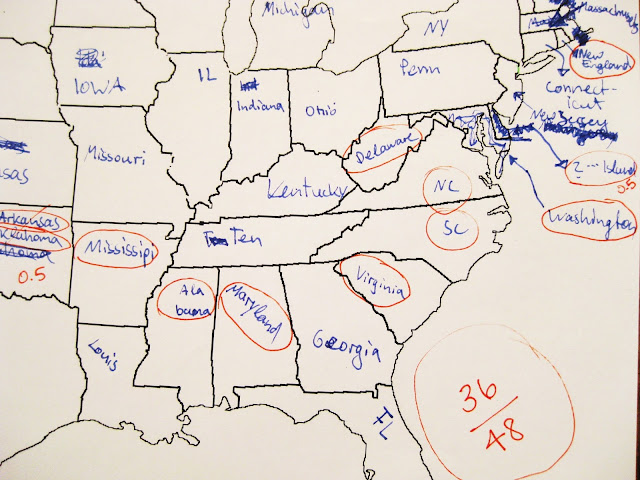 Michigan
NY
Massachusetts
New
England
Connect-
icut
New Jersey
IOWA
IL
Indiana
Ohio
Penn
Missouri
Delaware
Kentucky
NC
Z... Island
0.5
Washington
SC
sas
Arkansas
Klahoma
0.5
Mississipi
Ten
Ala
bama
Maryland
Virginia
Louis
Georgia
FL
36
48